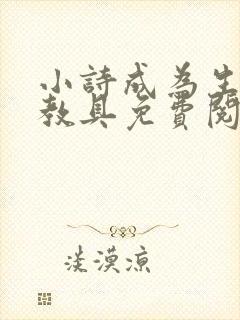 小詩成為生
教具免費閱
淡漠涼